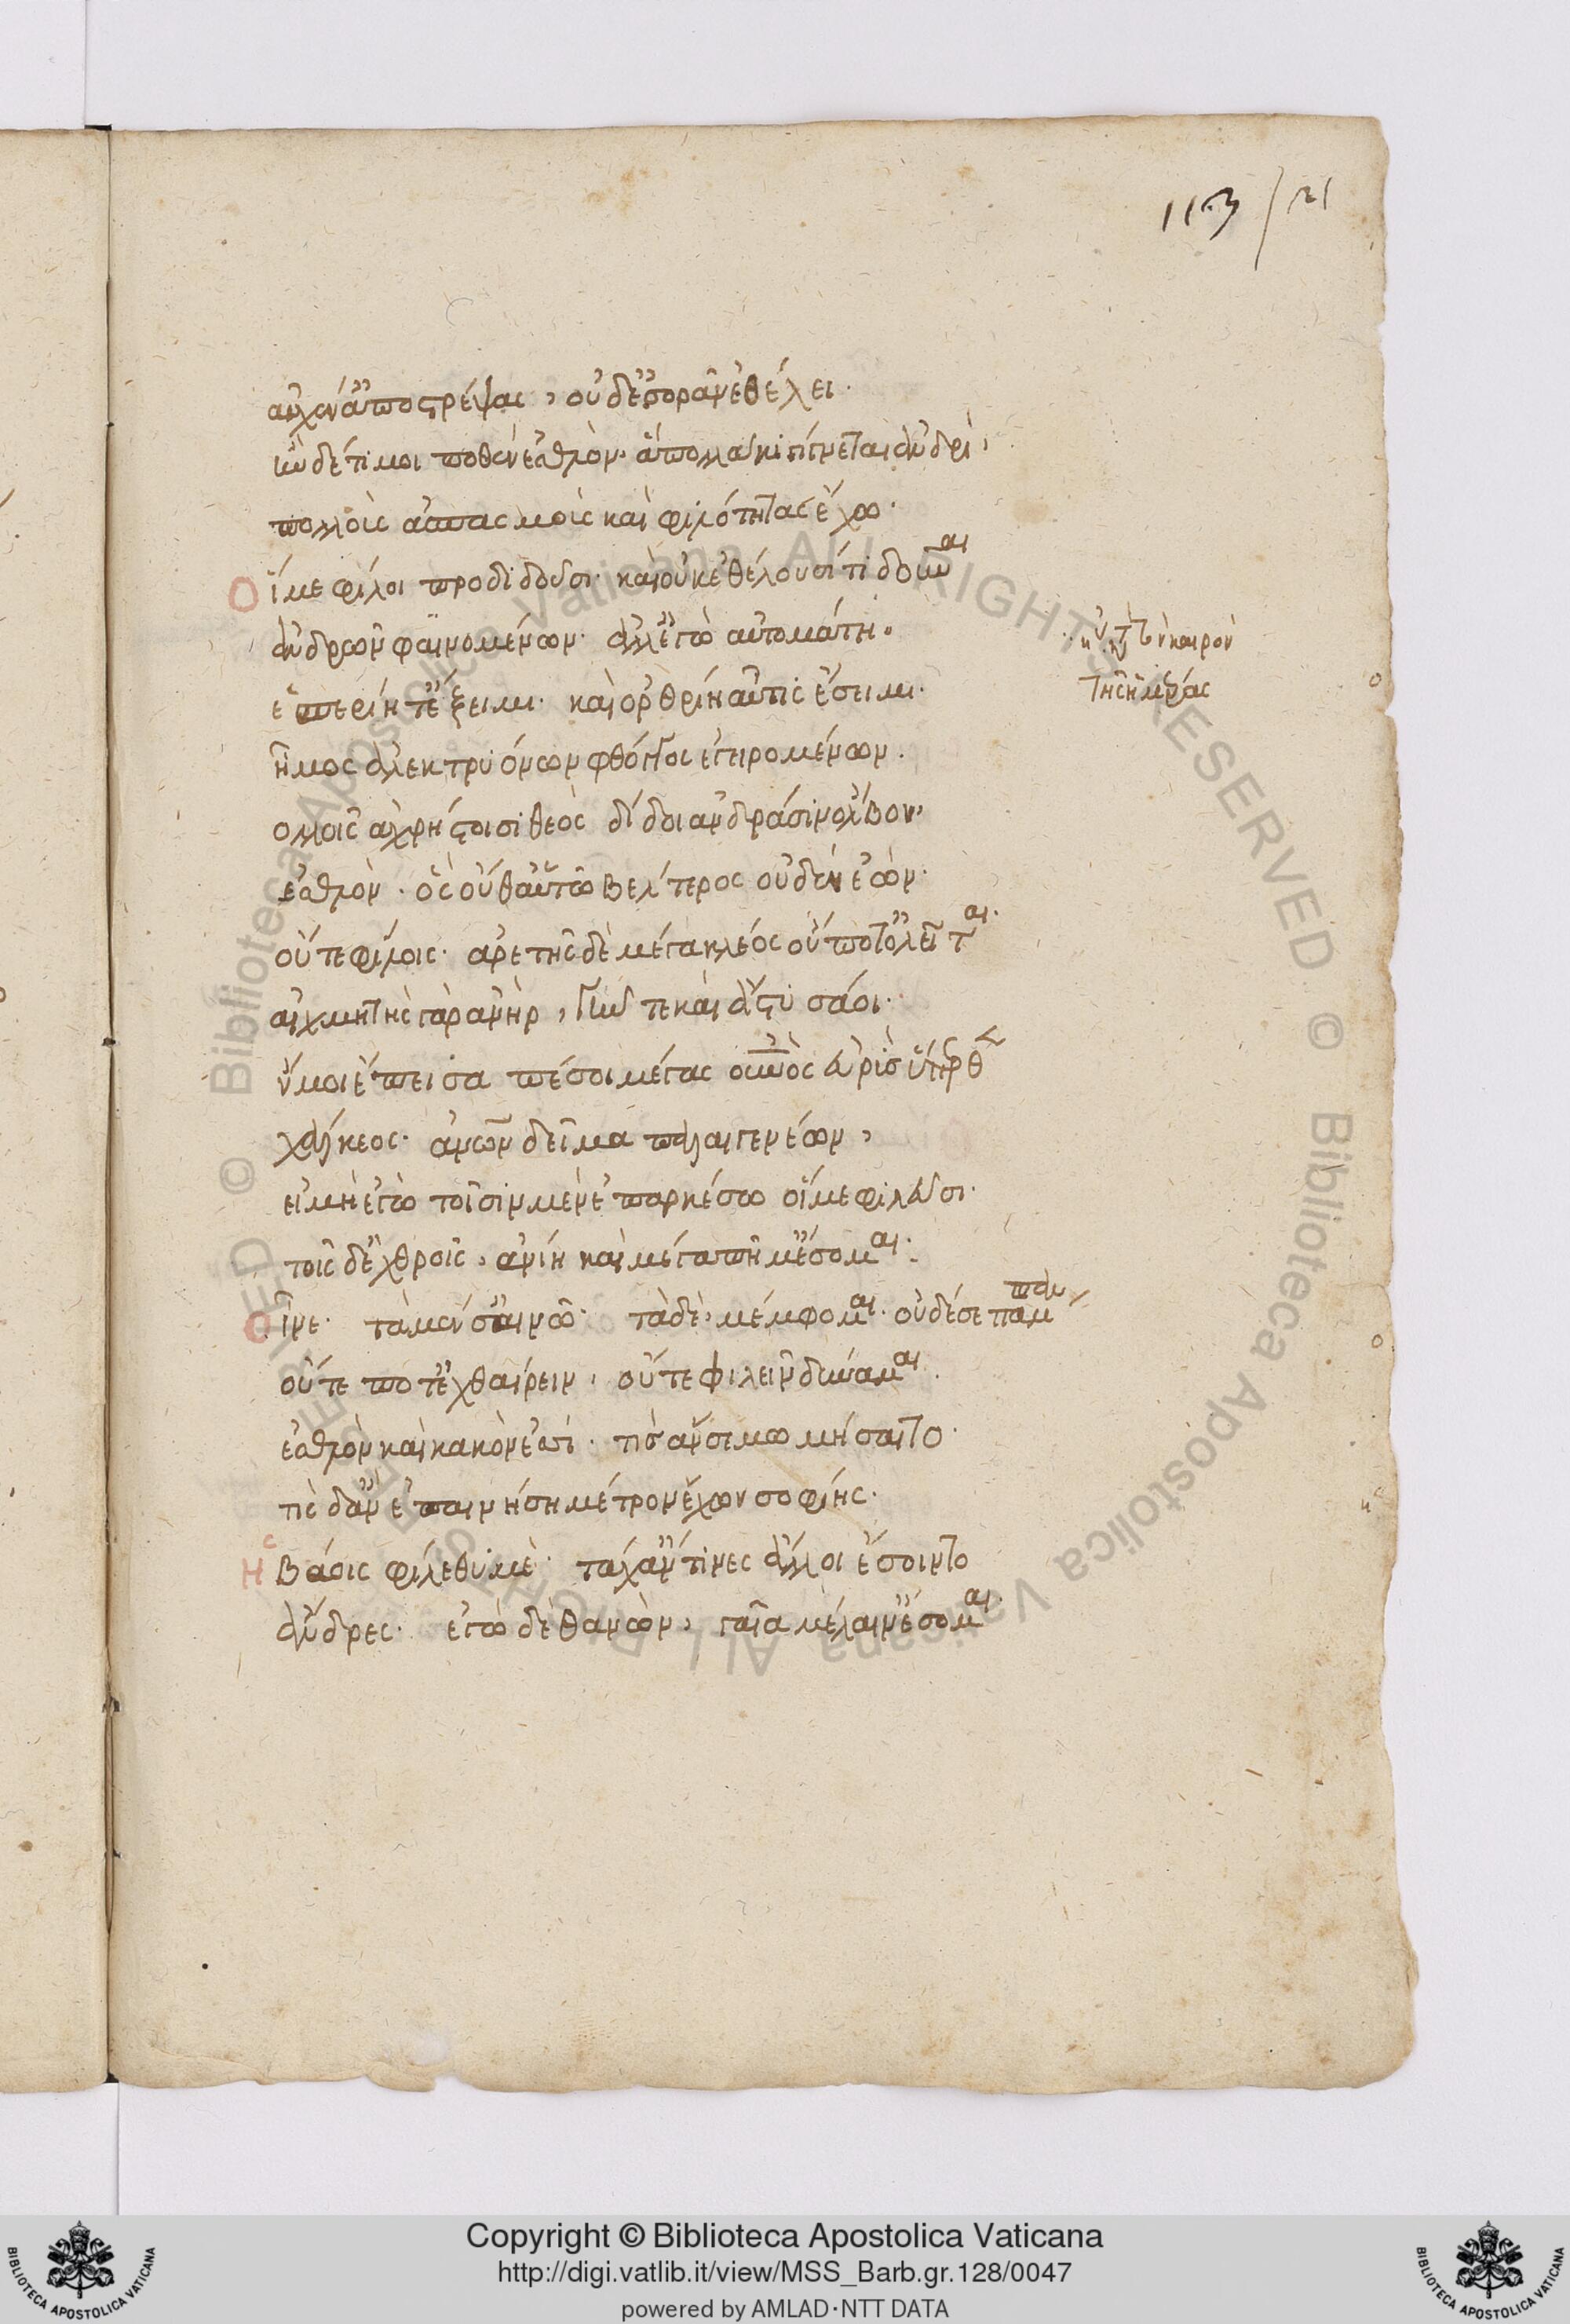 113 / 21
αὐχέν' ἀποστρέψας, οὐδ' ἐσορᾶν ἐθέλει.
ἢν δέ τί μοι ποθὲν ἐσθλὸν. ἃ πολλάκι γίνεται ἀνδρὶ,
πολλοὺς ἀσπασμοὺς καὶ φιλότητας ἔχω.
Οἵ με φίλοι προδιδοῦσι. καὶ οὐκ ἐθέλουσί τι δοῦναι
ἀνδρῶν φαινομένων. ἀλλ' ἐγὼ αὐτομάτη.
ἑσπερίη τ' ἔξειμι. καὶ ὀρθρίη αὖτις ἔσειμι.
ἦμος ἀλεκτρυόνων φθόγγος ἐγειρομένων.
κατὰ τὸν καιρὸν
τῆς ἡμέρας
ολλοῖς ἀχρήστοισι θεὸς δίδοι ἀνδράσιν ὄλβον.
ἐσθλὸν. ὃς οὔθ' αὑτῷ βέλτερος οὐδὲν ἐὼν.
οὔτε φίλοις. ἀρετῆς δὲ μέγα κλέος οὔποτ' ὀλεῖται.
αἰχμητὴς γὰρ ἀνὴρ, γῆν τε καὶ ἄστυ σάοι.
ν μοι ἔπειτα πέσοι μέγας οὐρανὸς εὐρὺς ὕπερθεν
χάλκεος. ἀνθρώπων δεῖμα παλαιγενέων,
εἰ μὴ ἐγὼ τοῖσιν μὲν ἐπαρκέσω οἵ με φιλεῦσι.
τοῖς δ' ἐχθροῖς, ἀνίη καὶ μέγα πῆμ' ἔσομαι.
Οἶνε. τὰ μέν σ' αἰνῶ. τὰ δὲ μέμφομαι. οὐδέ σε πάμπαν
οὔτε ποτ' ἐχθαίρειν, οὔτε φιλεῖν δύναμαι.
ἐσθλὸν καὶ κακὸν ἐσσί. τίς ἄν σε μωμήσαιτο.
τίς δ' ἂν ἐπαινήσῃ μέτρον ἔχων σοφίης.
Ἡβάοις φίλε θυμὲ. τάχ' ἄν τινες ἄλλοι ἔσοιντο
ἄνδρες. ἐγὼ δὲ θανὼν, γαῖα μέλαιν' ἔσομαι.
Copyright © Biblioteca Apostolica Vaticana
http://digi.vatlib.it/view/MSS_Barb.gr.128/0047
powered by AMLAD·NTT DATA